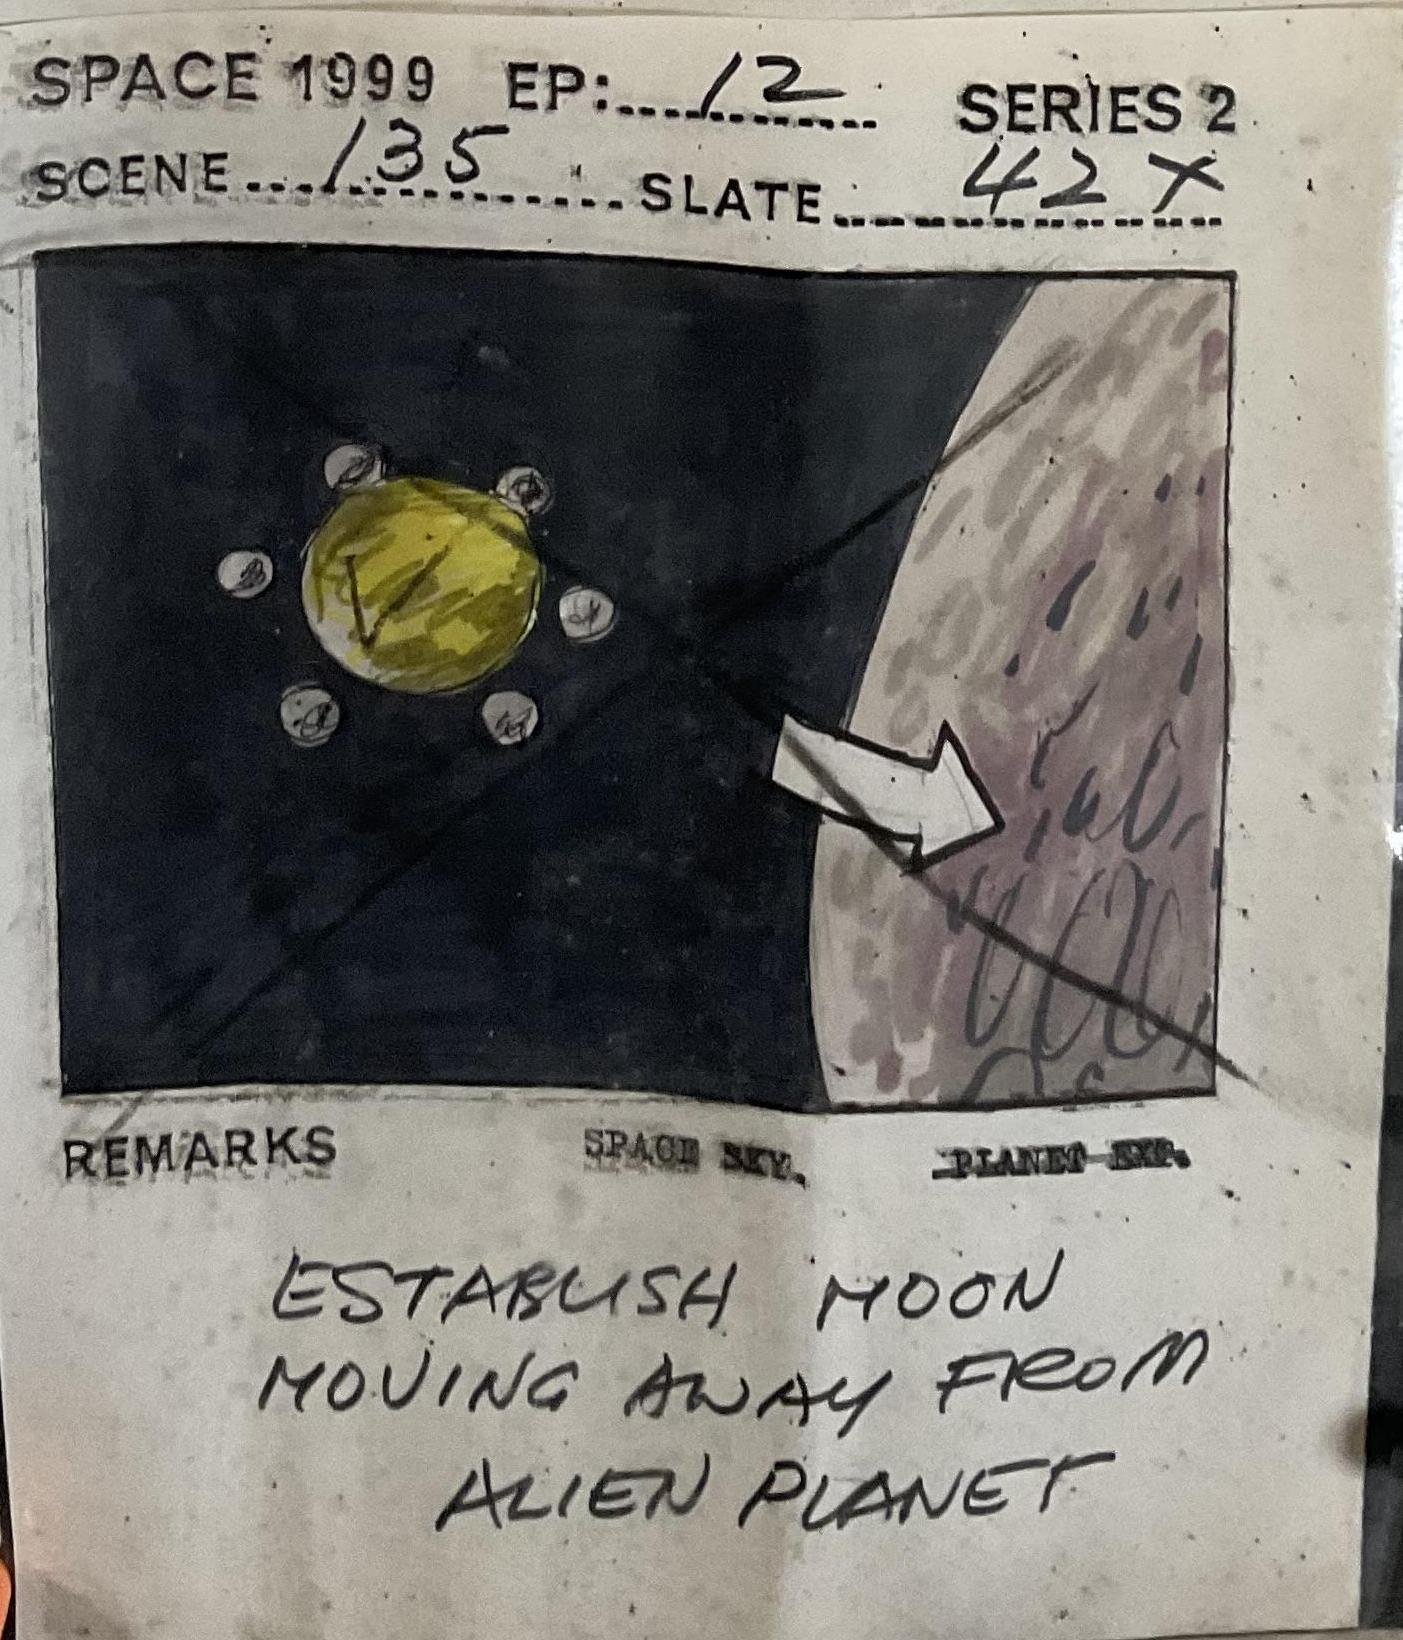 SPACE 1999 EP: 12 SERIES 2
SCENE 135 SLATE 42 X
V
REMARKS SPACE SKY. PLANET EXP.
ESTABLISH MOON
MOVING AWAY FROM
ALIEN PLANET